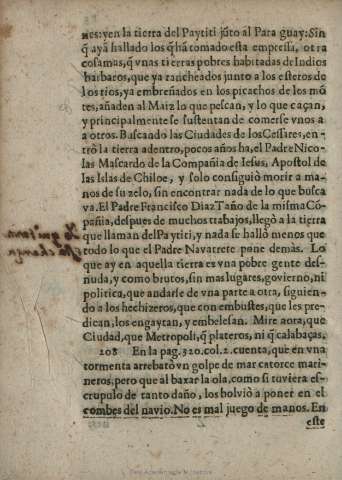 nes: y en la tierra del Paytiti jũto al Para guay: Sin
q̃ aya hallado los q̃ hã tomado esta empressa, otra
cosa mas, q̃ vnas tierras pobres habitadas de Indios
barbaros, que ya rancheados junto a los esteros de
los rios, ya embreñados en los picachos de los mõ
tes, añaden al Maiz lo que pescan, y lo que caçan,
y principalmente se sustentan de comerse vnos a
a otros. Buscando las Ciudades de los Cessares, en-
trò la tierra adentro, pocos años ha, el Padre Nico-
las Mascardo de la Compañia de Iesus, Apostol de
las Islas de Chiloe, y solo consiguiò morir a ma-
nos de su zelo, sin encontrar nada de lo que busca
va. El Padre Francisco Diaz Taño de la misma Cõ-
pañia, despues de muchos trabajos, llegò a la tierra
que llaman del Paytiti, y nada se hallò menos que
todo lo que el Padre Navarrete pone demàs. Lo
que ay en aquella tierra es vna pobre gente des-
nuda, y como brutos, sin mas lugares, govierno, ni
politica, que andarse de vna parte a otra, siguien-
do a los hechizeros, que con embustes, que les pre-
dican, los engaytan, y embelesan. Mire aora, que
Ciudad, que Metropoli, q̃ plateros, ni q̃ calabaças.
208 En la pag. 320. col. 2. cuenta, que en vna
tormenta arrebatò vn golpe de mar catorce mari-
neros, pero que al baxar la ola, como si tuviera es-
crupulo de tanto daño, los bolviò a poner en el
combes del navio. No es mal juego de manos. En
este